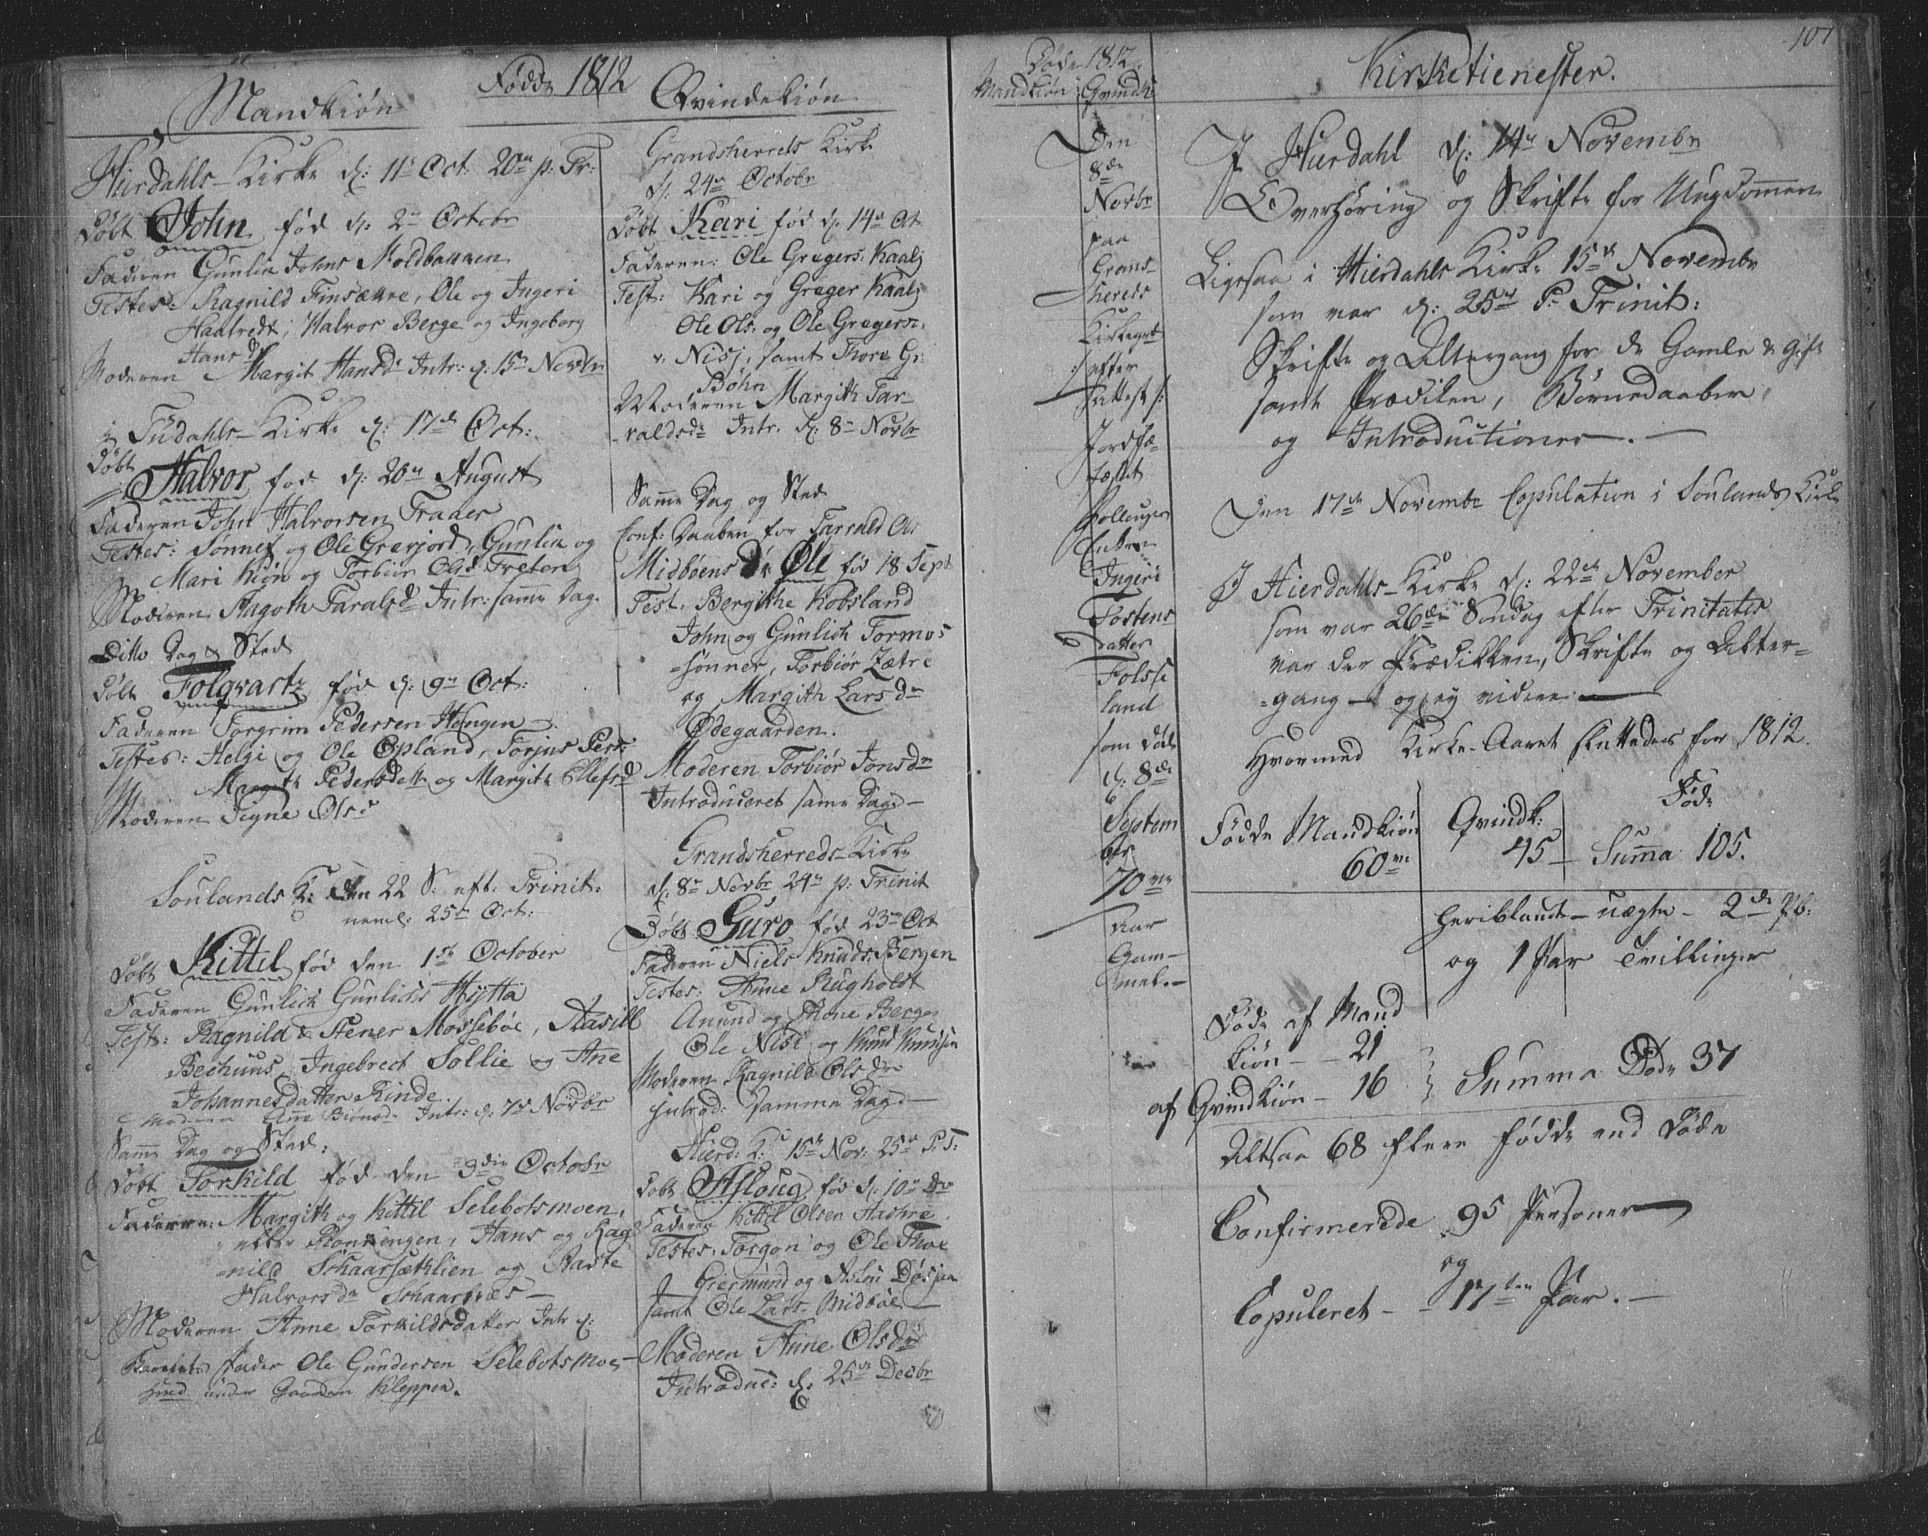 Fødde 1812
Mandkiøn
Hierdahls Kirke d: 11te Oct: 20de p: Tr:
Døbt John fød d: 2den Octobr
Faderen Gunlin Johns Moldbakken
Testes: Ragnild Finsættre, Ole og Ingeri
Haatvedt, Halvor Berge og Ingeborg
Hans d
Moderen Margit Hansdr Intr: d: 15de Novbr
i Tudahls Kirke d: 17de Oct:
Døbt
Halvor fød d: 20de August
Faderen John Halvorsen Trader
Testes: Sønnef og Ole Graverjord, Gunlin og
Mari Kiøn og Torbiør Olsd Treton
Moderen Aagoth Taralsd Intr: samme Dag.
Ditto Dag & Sted
Døbt Folqvartz fød d: 9de Oct:
Faderen Torgrim Pedersen Hængen
Testes: Helgi og Ole Opland, Torjus Pers:
Margit Pedersdatt og Margith Ellefsd
Moderen Signe Ols:
Soulands K: den 22 S: eft: Trinit:
neml: 25de Oct:
Døbt Kittil fød den 1ste October
Faderen Gunlich Gunlichs Hytta
Test: Ragnild & Stener Mossebøe, Aasill
Bechuus, Ingebrect Sollie og Ane
Johannesdatter Rinde.
Moderen Anne Biørnsd Intr: d: 7de Novbr
Samme Dag og Sted:
Døbt Torkild fød den 3die Octobr
Fadderne: Margith og Kittil Selebotsmoen,
eller Rønningen, Hans og Rag
nild Schaarsæthlien og Aaste
Halvorsdr Schaarnæs
Moderen Anne Torkildsdatter Intr d:
Barnets fader Ole Gundersen Selebotsmoe
huus under Gaarden Kleppen.
Qvindekiøn
Grandsherreds Kirke
d: 24de Octobr
Døbt Kari fød d: 14de Oct
Faderen: Ole Gregers: Kaasj
Test: Kari og Greger Kaasj
Ole Ols: og Ole Gregers:
v: Nisj, samt Thore Gr:
Bøhn
Moderen Margith Tar-
valdsdr Intr. d: 8de Novbr
Samme Dag og Sted
Conf: Daaben for Tarrald Ols
Midbøens Sr Ole fød 18 Sept
Test. Bergithe Kobsland
John og Gunlich Tormos
sønner, Torbiør Zætre
og Margith Larsdr
Ødegaarden.
Moderen Torbiør Jonsdr
Introduceret same Dag
Grandsherreds Kirke
d: 8de Novbr 24de p: Trinit
Døbt Guro fød 23de Oct
Faderen Niels Knuds: Bergen
Testes: Anne Rugholdt
Anund og Thone Bergen
Ole Nisi og Knud Knudsen
Moderen Ragnild Olsdr
Introd: samme Dag
Hierd: K: 15de Nov: 25de P: T:
Døbt Asloug fød d: 10de Do
Faderen Kittil Olsen Haaheie
Testes: Torgon og Ole Thoe
Giermund og Aslou Døsjen
samt Ole Lars: Midbøe
Moderen Anne Olsdr
Introduc: d: 25de Decbr
Døde 1812.
Mandkiøn Qvindk
Den
8de
Novbr
paa
Grans-
hereds
Kirkegrd
/: efter
Attest :/
Jordfæ-
stet
Enken
Ingeri
Tostens
datter
Folsse
land
som døde
d: 8de
Septem
ber
70ve
Aar
Gam-
mel.
107
Kirketienester.
I Hierdahl d: 14de Novembr
Overhøring og Skrifte for Ungdommen
Ligesaa i Hierdahls Kirke 15de Novembr
som var d: 25de P: Trinit:
Skrifte og Altergang for de Gamle & Gifte
samt Prædiken, Børnedaaben,
og Introductioner.
Den 17de Novembr Copulation i Soulands Kirke
I Hierdahls Kirke d: 22de November
som var 26de Søndag efter Trinitatis
var der Prædikken, Skrifte og Alter-
gang og ey videre
Hvormed Kirke-Aaret sluttedes for 1812.
Fødde Mandkiøn Qvindk: Føde
60ve 45 Summa 105.
heriblandt uægte 2de Pb:
og 1 Par Tvillinger
Døde af Mand
kiøn 21
af Qvindkiøn 16 Summa Døde 37
Altsaa 68 flere fødde end Døde
Confirmerede 95 Personer
og
Copuleret 17ten Par.